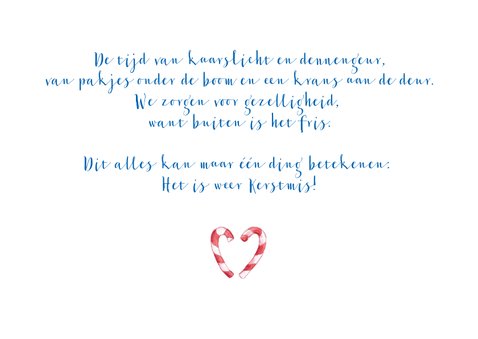 De tijd van kaarslicht en dennengeur,
van pakjes onder de boom en een krans aan de deur.
We zorgen voor gezelligheid,
want buiten is het fris.
Dit alles kan maar één ding betekenen:
Het is weer Kerstmis!